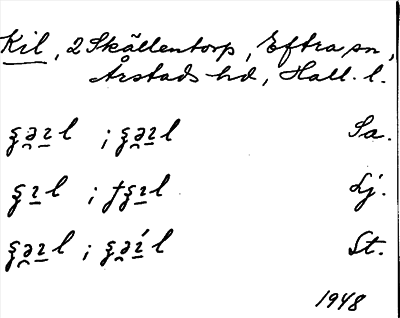 Kil, 2 Skällentorp, Eftra sn,
Årstads hd, Hall. l.
ʂə̯ɪ̱l ; ʂə̯ɪ̱l Sa.
ʂɪ̱l ; ƒʂɪ̱l Lj.
ʂə̯ɪ̱l ; ʂə̯ɪ̱́l St.
1948